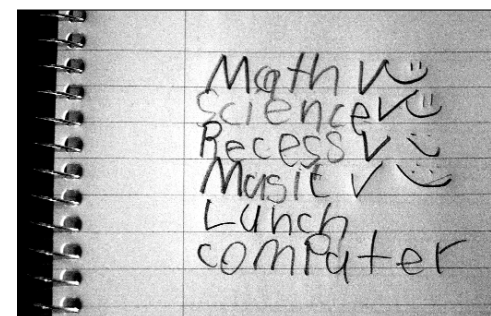 Math ✓ ☺
Science ✓ ☺
Recess ✓ ☺
Music ✓ ☺
Lunch
computer